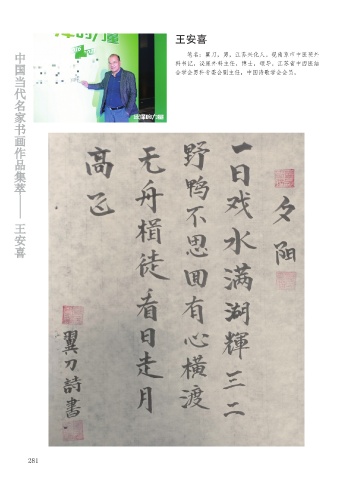 王安喜
笔名：翼刀，男，江苏兴化人。现南京市中医院外
科书记，泌尿外科主任，博士，硕导。江苏省中西医结
合学会男科专委会副主任，中国诗歌学会会员。
中国当代名家书画作品集萃——王安喜
夕阳
一日戏水满湖辉三二
野鸭不思回有心横渡
无舟楫徒看日走月
高飞
翼刀詩書
281